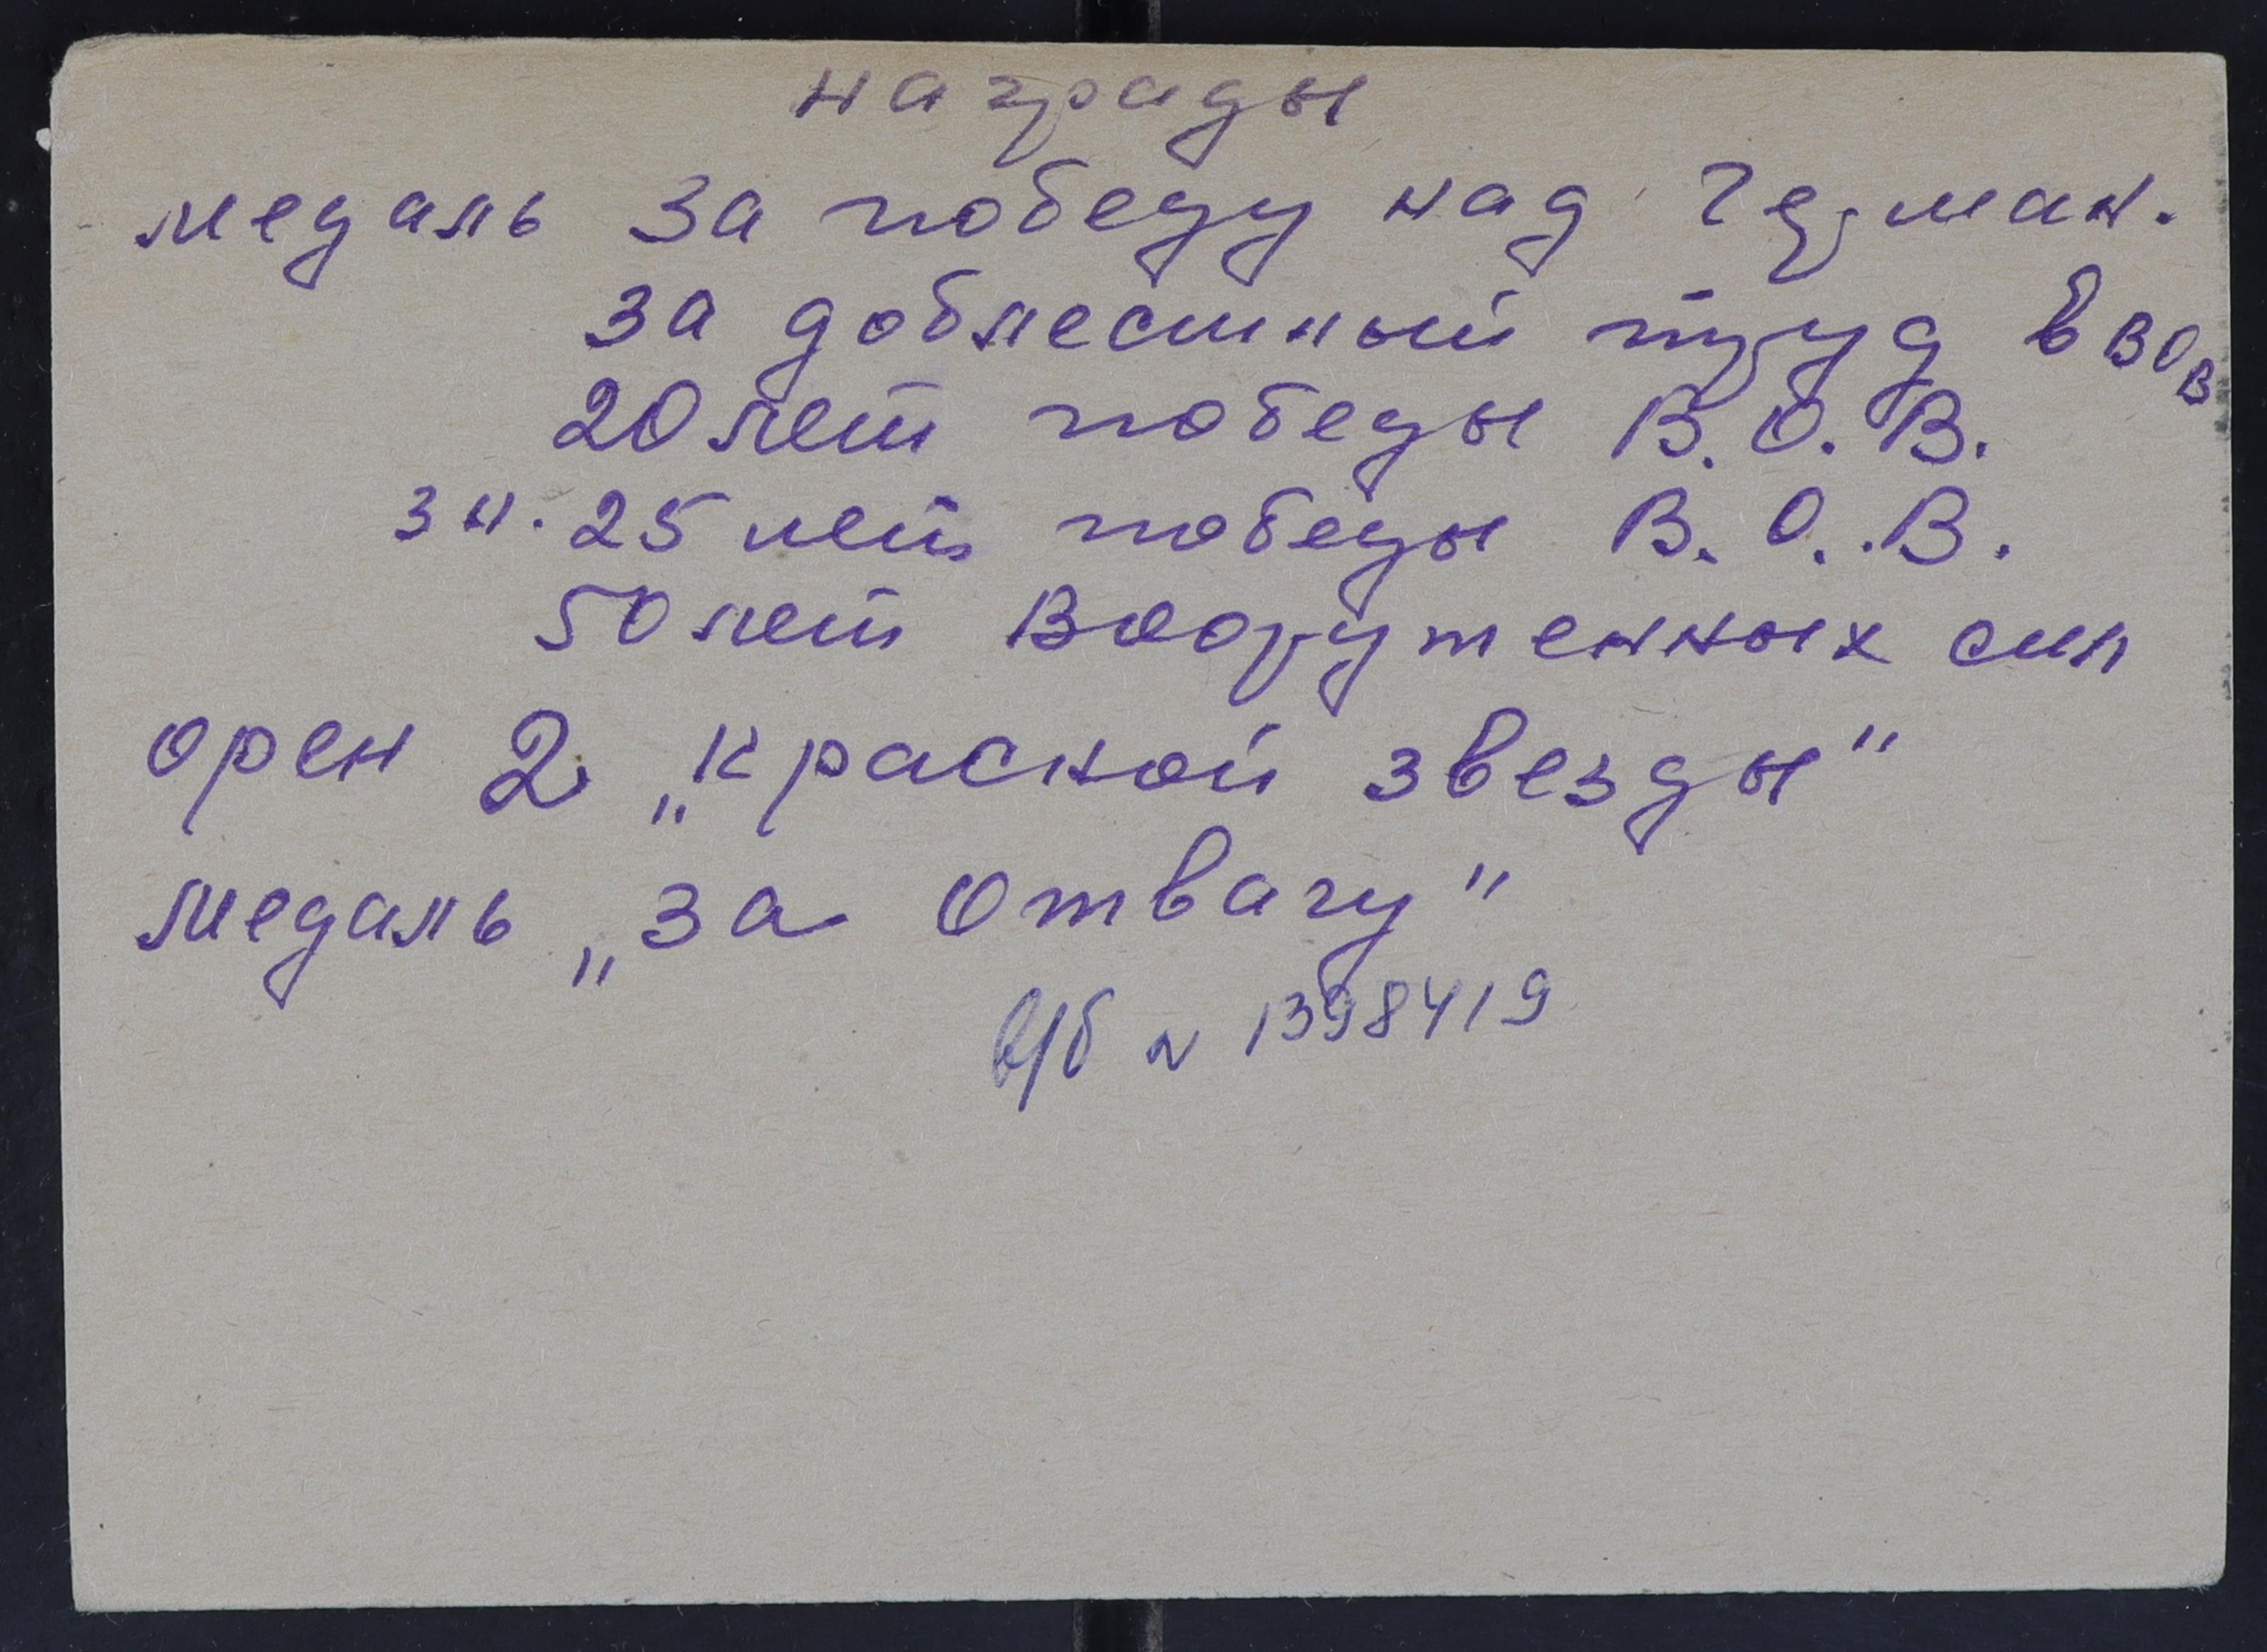 награды
медаль за победу над Герман.
за доблестный труд в ВОВ
20 лет победы В.О.В.
зн. 25 лет победы В.О.В.
50 лет Вооруженных сил
орен 2 „Красной звезды"
медаль „за отвагу"
в/б № 1398419